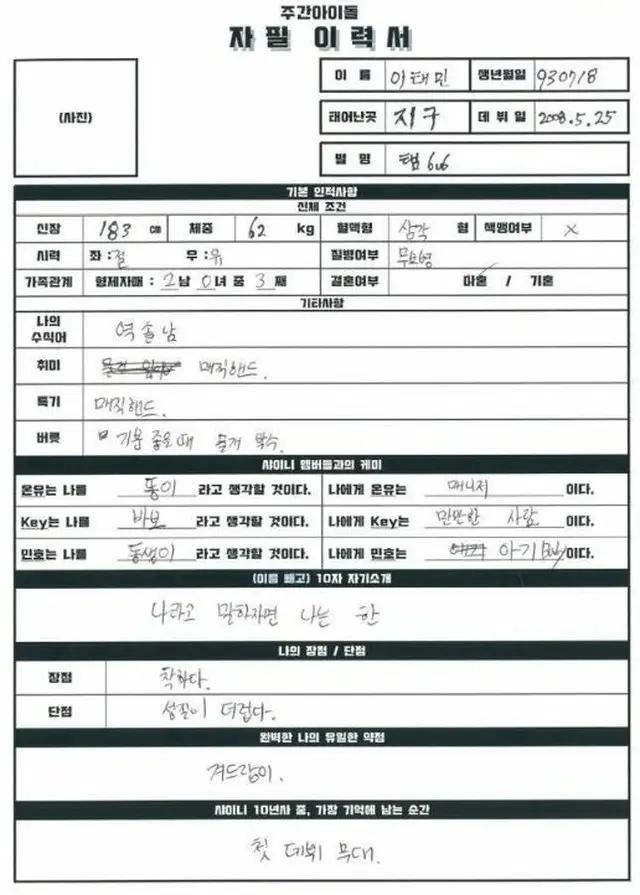 주간아이돌
자필 이력서
(사진)
이 름 이태민 생년월일 930718
태어난곳 지구 데 뷔 일 2008.5.25
별 명 탬
기본 인적사항
신체 조건
신장 183 cm 체중 62 kg 혈액형 삼각 형 색맹여부 X
시력 좌 : 우 : 질병여부
가족관계 형제자매 : 2남 0녀 중 3 째 결혼여부 미혼 / 기혼
기타사항
나의
수식어 역솔남
취미 매직핸드.
특기 매직핸드.
버릇 기분 좋을때 물개 박수.
샤이니 멤버들과의 케미
온유는 나를 똥이 라고 생각할 것이다. 나에게 온유는 매니저 이다.
Key는 나를 바보 라고 생각할 것이다. 나에게 Key는 만만한 사람 이다.
민호는 나를 동생이 라고 생각할 것이다. 나에게 민호는 아기(Baby)이다.
(이름 빼고) 10자 자기소개
나라고 말하자면 나는 한
나의 장점 / 단점
장점 착하다.
단점 성질이 더럽다.
완벽한 나의 유일한 약점
겨드랑이.
샤이니 10년사 중, 가장 기억에 남는 순간
첫 데뷔 무대.